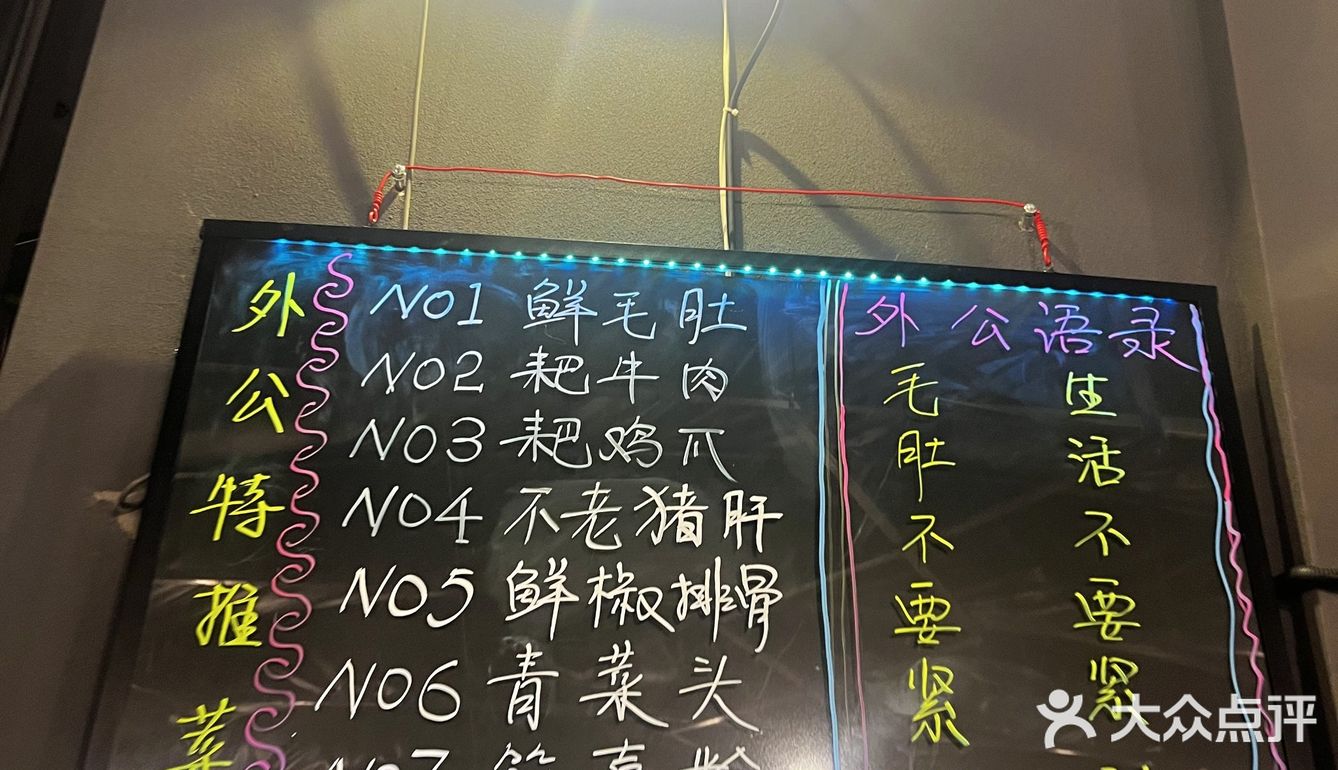 外公特推菜
NO1 鲜毛肚
NO2 耙牛肉
NO3 耙鸡爪
NO4 不老猪肝
NO5 鲜椒排骨
NO6 青菜头
NO7
外公语录
生活不要紧
毛肚不要紧
大众点评